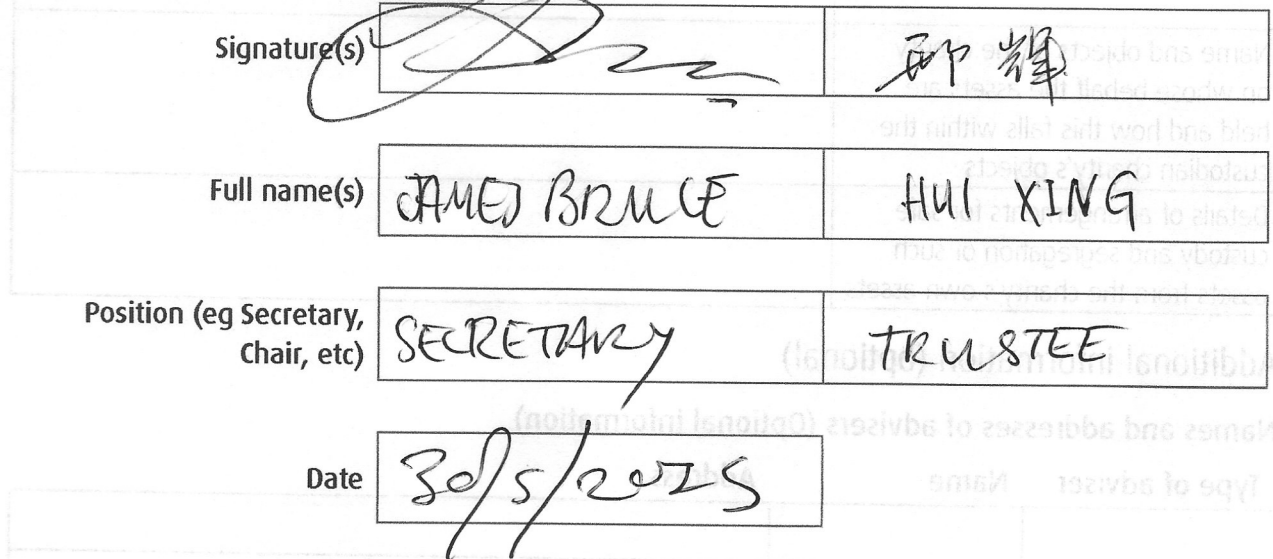 Signature(s) 邢辉
Full name(s) JAMES BRUCE HUI XING
Position (eg Secretary,
Chair, etc) SECRETARY TRUSTEE
Date 30/5/2025